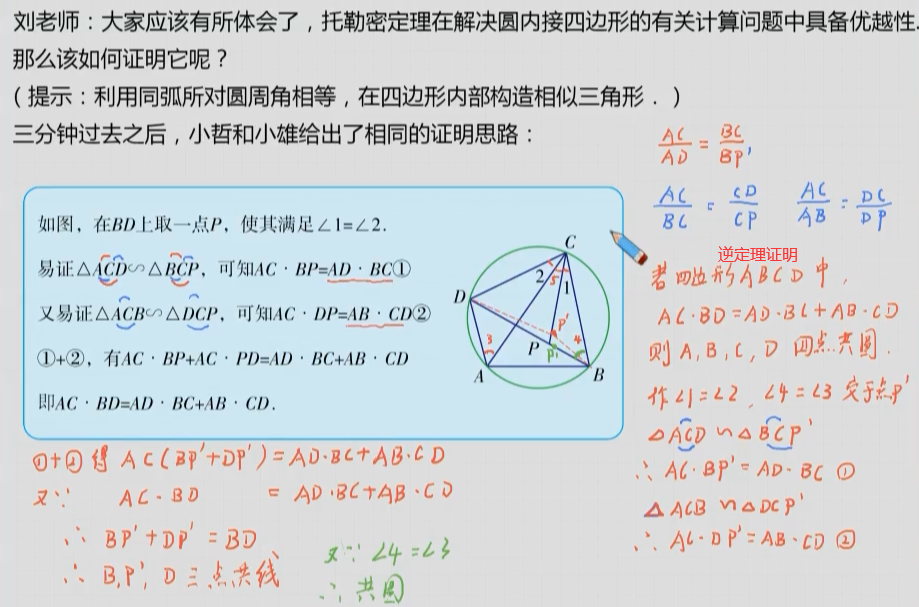 刘老师：大家应该有所体会了，托勒密定理在解决圆内接四边形的有关计算问题中具备优越性.
那么该如何证明它呢？
（提示：利用同弧所对圆周角相等，在四边形内部构造相似三角形．）
三分钟过去之后，小哲和小雄给出了相同的证明思路：
如图，在BD上取一点P，使其满足∠1=∠2.
易证△ACD∽△BCP，可知AC·BP=AD·BC①
又易证△ACB∽△DCP，可知AC·DP=AB·CD②
①+②，有AC·BP+AC·PD=AD·BC+AB·CD
即AC·BD=AD·BC+AB·CD.
C
2
5
1
D
P'
3
P
P'
4
A
B
AC/AD = BC/BP,
AC/BC = CD/CP
AC/AB = DC/DP
逆定理证明
若四边形ABCD中，
AC·BD=AD·BC+AB·CD
则A,B,C,D四点共圆.
作∠1=∠2，∠4=∠3交于点P'
△ACD∽△BCP'
∴AC·BP'=AD·BC ①
△ACB∽△DCP'
∴AC·DP'=AB·CD ②
①+②得 AC(BP'+DP')=AD·BC+AB·CD
又∵ AC·BD = AD·BC+AB·CD
∴ BP'+DP'=BD
∴ B,P',D三点共线
又∵∠4=∠3
∴共圆